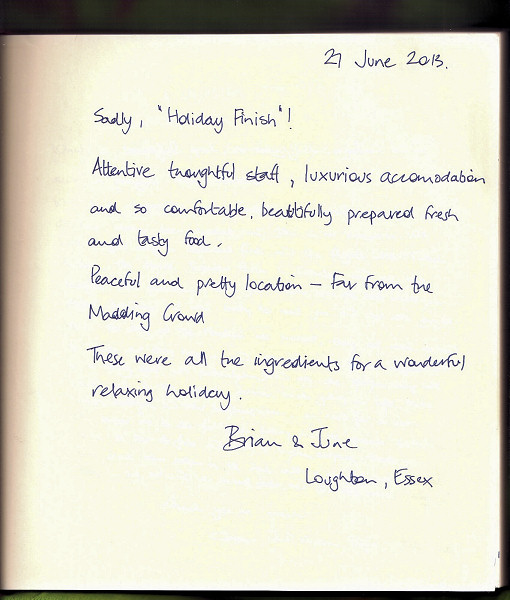 27 June 2013.
Sadly, "Holiday Finish"!
Attentive thoughtful staff, luxurious accomodation
and so comfortable, beautifully prepared fresh
and tasty food.
Peaceful and pretty location – Far from the
Madding Crowd
These were all the ingredients for a wonderful
relaxing holiday.
Brian & June
Loughton, Essex